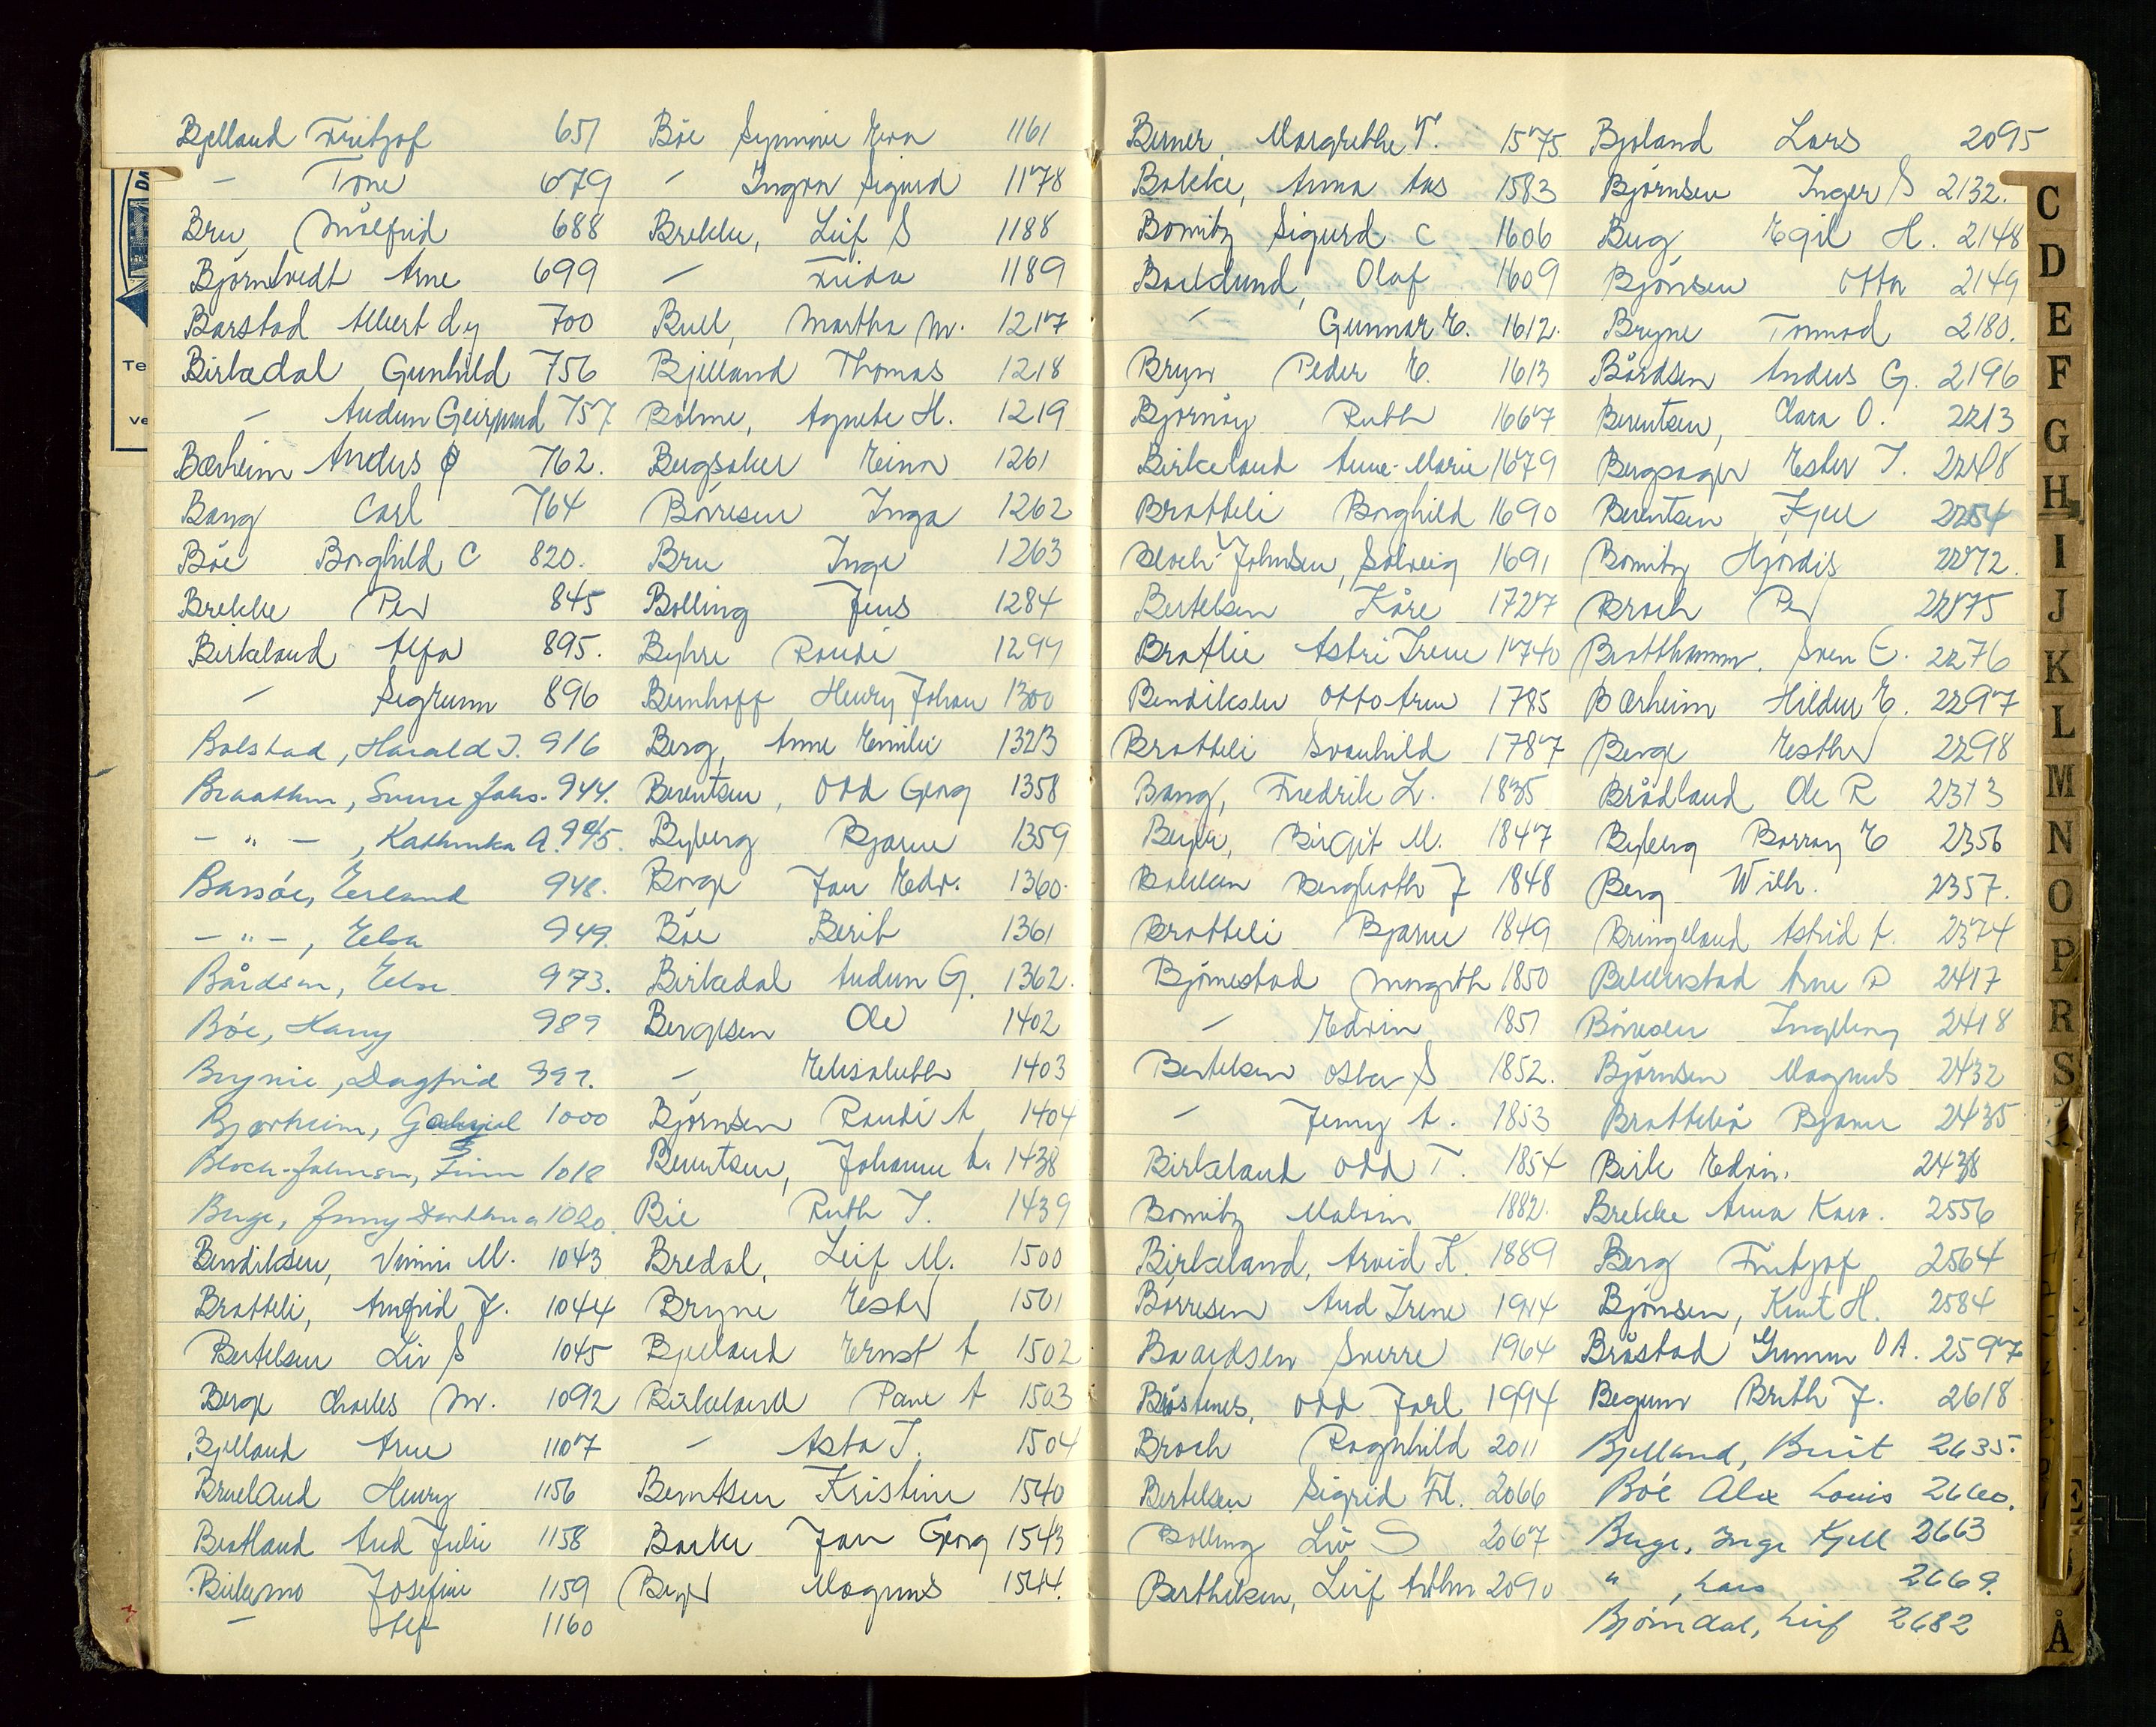 Bjelland Fritjof 651
- Tone 679
Bru, Målfrid 688
Björntvedt Arne 699
Barstad Albert dy 700
Birkedal Gunhild 756
- Audun Geirmund 757
Bærheim Andus Ø 762.
Bang Carl 764
Böe Borghild C 820.
Brekke Per 845
Birkeland Alfa 895.
- Sigrunn 896
Bolstad, Harald J. 916
Braathen, Sverre Johs. 944.
- " - , Kathinka A. 945.
Barsöe, Erland 948.
- " - , Elsa 949.
Bårdsen, Else 973.
Böe, Harry 989
Brynie, Dagfrid 997.
Bjærheim, Gabriel 1000
Bloch-Johnsen, Finn 1018
Berge, Jenny Dorthea 1020.
Bendiksen, Vinni M. 1043
Bratteli, Arnfrid J. 1044
Bertelsen Liv S 1045
Berge Charles M. 1092
Bjelland Arne 1107
Brueland Henry 1156
Bratland Aud Julie 1158
Birkemo Josefine 1159
- Alf 1160
Böe Synnöve Eva 1161
- Ingvar Sigurd 1178
Brekke, Leif S 1188
- Frida 1189
Bull, Martha M. 1217
Bjelland Thomas 1218
Böhme, Agnete H. 1219
Bergsaker Einar 1261
Börresen Inga 1262
Bru Inge 1263
Bolling Jens 1284
Byhre Randi 1299
Bernhoff Henry Johan 1300
Berg, Anne Emilie 1323
Berentsen, Odd Georg 1358
Byberg Bjarne 1359
Borge Jan Edv. 1360.
Böe Berit 1361
Birkedal Audun G. 1362.
Bergesen Ole 1402
- Elisabeth 1403
Björnsen Randi A 1404
Berentsen, Johanne A. 1438
Bie Ruth J. 1439
Bredal, Leif M. 1500
Bryne Ester 1501
Bjelland Ernst A 1502
Birkeland Pane A 1503
- Asta J. 1504
Berntsen Kristine 1540
Barke Jan Georg 1543
Beyer Magnus 1544.
Berner, Margrethe T. 1575
Bakke, Anna Aas 1583
Bomitz Sigurd C 1606
Backlund, Olaf 1609
- Gunnar E. 1612.
Bryn Peder E. 1613
Björnöy Ruth 1667
Birkeland Anne-Marie 1679
Bratteli Borghild 1690
Bloch-Johnsen, Solveig 1691
Bertelsen Kåre 1727
Bratlie Astri Irene 1740
Bendiksen Otto Arne 1785
Bratteli Svanhild 1787
Bang, Fredrik L. 1835
Beyer, Birgit M. 1847
Bakken Bergljoth J 1848
Bratteli Bjarne 1849
Björnestad Margith 1850
- Edvin 1851
Bertelsen Oskar S 1852.
- Jenny A. 1853
Birkeland Odd T. 1854
Bomitz Malvin 1882.
Birkeland, Arvid K. 1889
Börresen Aud Irene 1914
Baardsen Sverre 1964
Bråstenes, Odd Jarl 1994
Broch Ragnhild 2011
Bertelsen Sigrid Fr. 2066
Bolling Liv S 2067
Berthelsen, Leif Arthur 2090
Bjoland Lars 2095
Björnsen Inger S 2132.
Berg Egil H. 2148
Björnsen Otto 2149
Bryne Tormod 2180.
Bårdsen Anders G. 2196
Berentsen, Clara O. 2213
Bergsager Ester J. 2248
Berentsen Kjell 2254
Bomitz Hjördis 2272.
Broch Per 2275
Bratthammer. Sven E. 2276
Bærheim Hildur E. 2297
Berge Esther 2298
Brådland Ole R 2313
Byberg Borroy E 2356
Berg Wilh. 2357.
Bringeland Astrid A. 2374
Bekkerstad Arne P 2417
Börresen Ingeborg 2418
Björnsen Magnus 2432
Bratteliö Bjarne 2435
Birk Edvin. 2438
Brekke Anna Kaia. 2556
Berg Fritjof 2564
Björnsen, Knut H. 2584
Bråstad Gunnar O A. 2597
Begum Brith J. 2618
Bjelland, Berit 2635.
Böe Alex Louis 2660.
Berge, Inge Kjell 2663
" , Lars 2669.
Bjørndal, Leif 2682
C
D
E
F
G
H
I
J
K
L
M
N
O
P
R
S
Å
DA
Te
ve